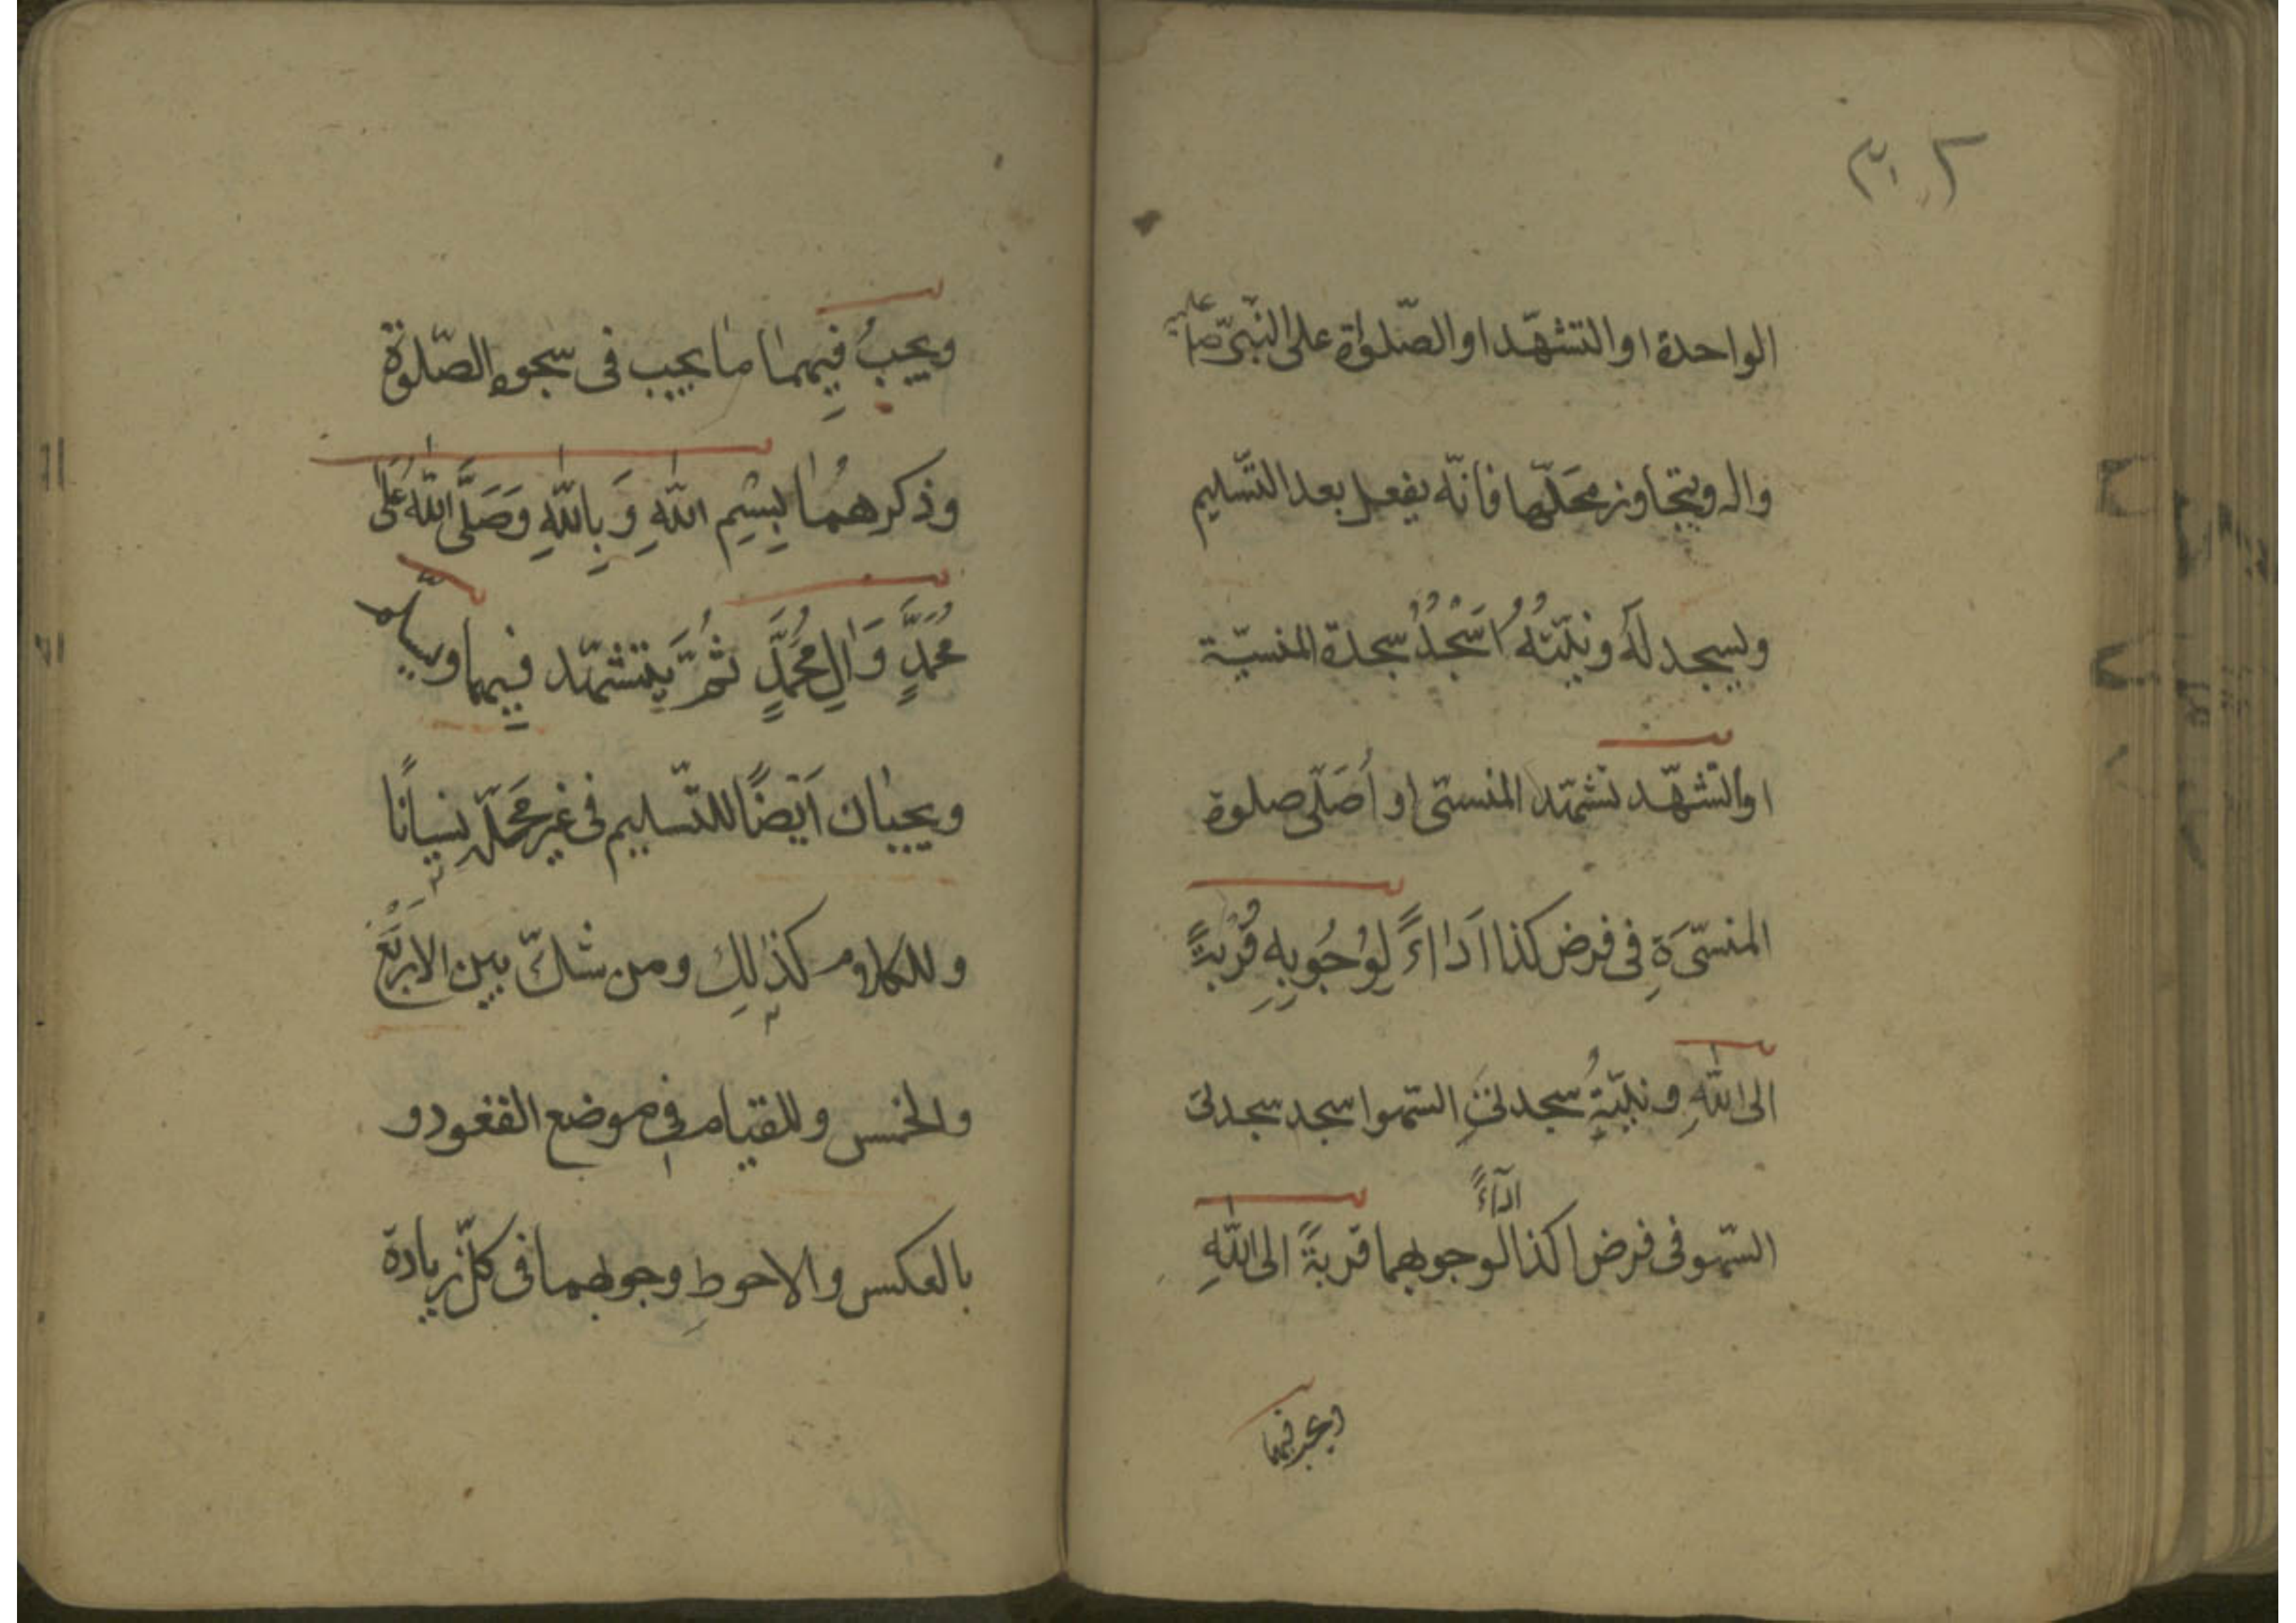 ٣٠٢
الواحدة او التشهّد او الصّلوٰة على النّبيّ صلّى عليه
واله ويتجاوز محَلّها فانّه يفعل بعد التّسليم
ويسجد لَهُ ونيّتهُ اَسْجُدُ سجدة المنسيّة
او التشهّد تشهّد المنسىّ او اُصَلّى صلوة
المنسيّةِ فى فرض كذا اَدٰاءً لِوُجُوبِهِ قُرْبَةً
الى اللّٰهِ ونيّةُ سجدتىِ السّهو اسجد سجدتى
السّهو فى فرض كذا اداءً لوجوبهما قربةً الى اللّٰهِ
ويجب فيهما
ويجبُ فِيهمٰا مٰا يجب فى سجود الصّلوٰة
وذكرهمُٰا بِسْمِ اللّٰهِ وَبِاللّٰهِ وَصَلَّى اللّٰهُ عَلٰى
مُحَمَّدٍ وَاٰلِ مُحَمَّدٍ ثُمَّ يتشهّد فِيهما ويسلّم
ويجبٰان اَيْضًا للتّسليم فى غير مَحَلّه نسيانًا
وللكلام كذٰلِك ومن شكّ بين الاربَع
والخمس وللقيام فى موضع القعود و
بالعكس والاحوط وجوبهما فى كلّ زيادة